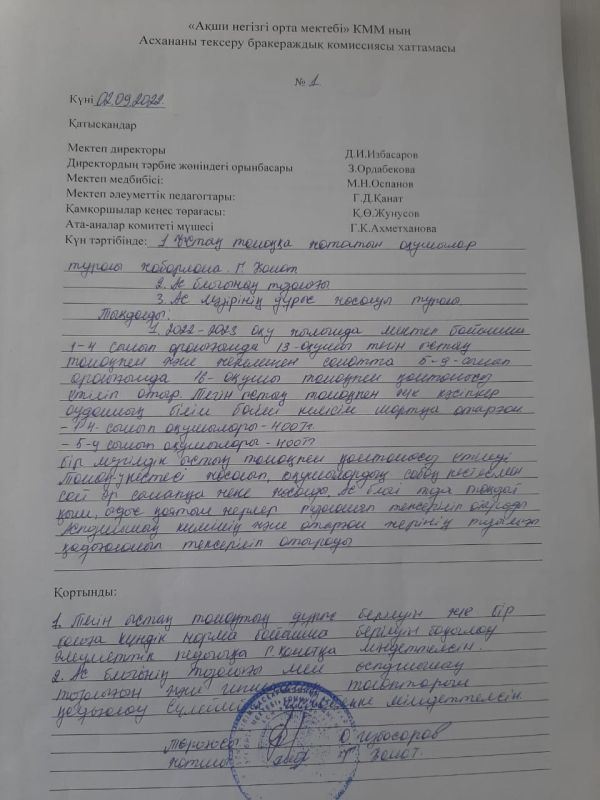 «Ақши негізгі орта мектебі» КММ нын
Асхананы тексеру бракераждық комиссиясы хаттамасы
№ 1
Күні 02.09.2022.
Қатысқандар
Мектеп директоры Д.И.Избасаров
Директордың тәрбие жөніндегі орынбасары З.Ордабекова
Мектеп медбибісі: М.Н.Оспанов
Мектеп әлеуметтік педагогтары: Г.Д.Қанат
Қамқоршылар кеңес төрағасы: Қ.Ө.Жунусов
Ата-аналар комитеті мүшесі Г.К.Ахметханова
Күн тәртібінде: 1 Ыстық тамаққа жататын оқушылар
туралы хабарлама. Г. Қанат
2. Ас блогының тазалығы
3. Ас мәзірінің дұрыс жасалуы туралы
Тыңдалды:
1. 2022-2023 оқу жылында мектеп бойынша
1-4 сынып аралығында 13-оқушы тегін ыстық
тамақпен және 5-9-сынып
аралығында 16-оқушы тамақпен қамтамасыз
етіліп отыр. Тегін ыстық тамақпен жк кәсіпкер
аудандық білім бөлімі келісім шартқа отырған
- 1-4 сынып оқушылары - 400тг
- 5-9 сынып оқушылары - 400тг
бір мезгілдік ыстық тамақпен қамтамасыз етіледі
Тамақ кестесі жасалып, оқушылардың сабақ кестесімен
сай әр сыныпқа жеке жасалды. Ас блогі таза
қойылатын жерлер тазалығы тексеріліп отырады
Аспазшының киімінің және отырған жерінің тазалығы
қадағаланып тексеріліп отырады
Қортынды:
1. Тегін ыстық тамақтың дұрыс берілуін және бір
күндік норма бойынша берілуін бақылау
Әлеуметтік педагогқа Г.Қанатқа міндеттелсін.
2. Ас блогінің тазалығы мен аспазшының
тазалығын және талаптарын
қадағалау міндеттелсін.
Төрағасы Избасаров
хатшы Г. Қанат.